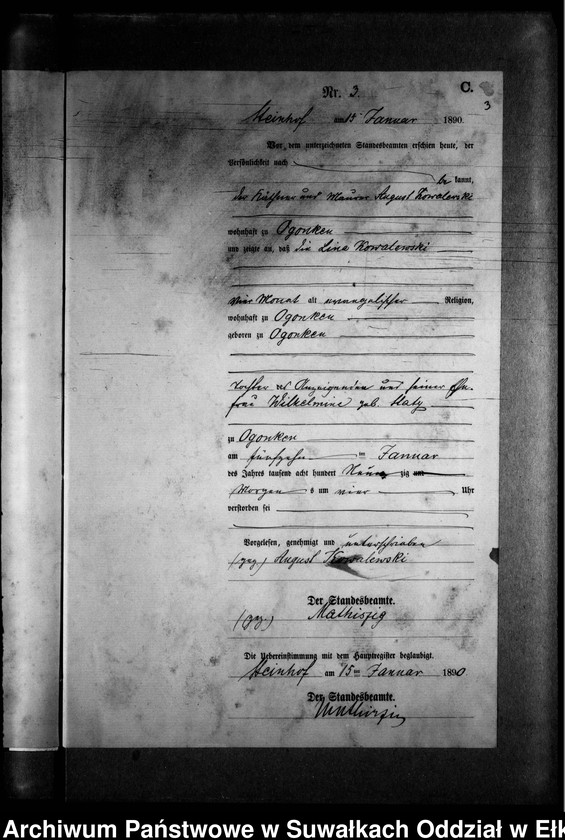 C.
3
Nr. 3.
Steinhof am 15 Januar 1890.
Vor dem unterzeichneten Standesbeamten erschien heute, der
Persönlichkeit nach
be kannt,
der Käthner und Maurer August Kowalewski
wohnhaft zu Ogonken
und zeigte an, daß die Lina Kowalewski
vier Monat alt evangelischer Religion,
wohnhaft zu Ogonken
geboren zu Ogonken
Tochter des Anzeigenden und seiner Ehe-
frau Wilhelmine geb. Staty
zu Ogonken
am fünfzehn ten Januar
des Jahres tausend acht hundert Neun zig und
Morgen s um vier Uhr
verstorben sei
Vorgelesen, genehmigt und unterschrieben
(gez.) August Kowalewski
Der Standesbeamte.
(gez.) Mathiszig
Die Uebereinstimmung mit dem Hauptregister beglaubigt.
Steinhof am 15ten Januar 1890
Der Standesbeamte.
Mathiszig
Archiwum Państwowe w Suwałkach Oddział w Ełk